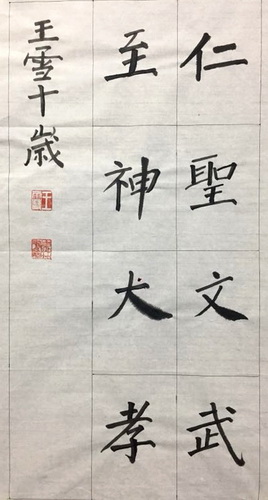 仁聖文武
至神大孝
王雪十歳